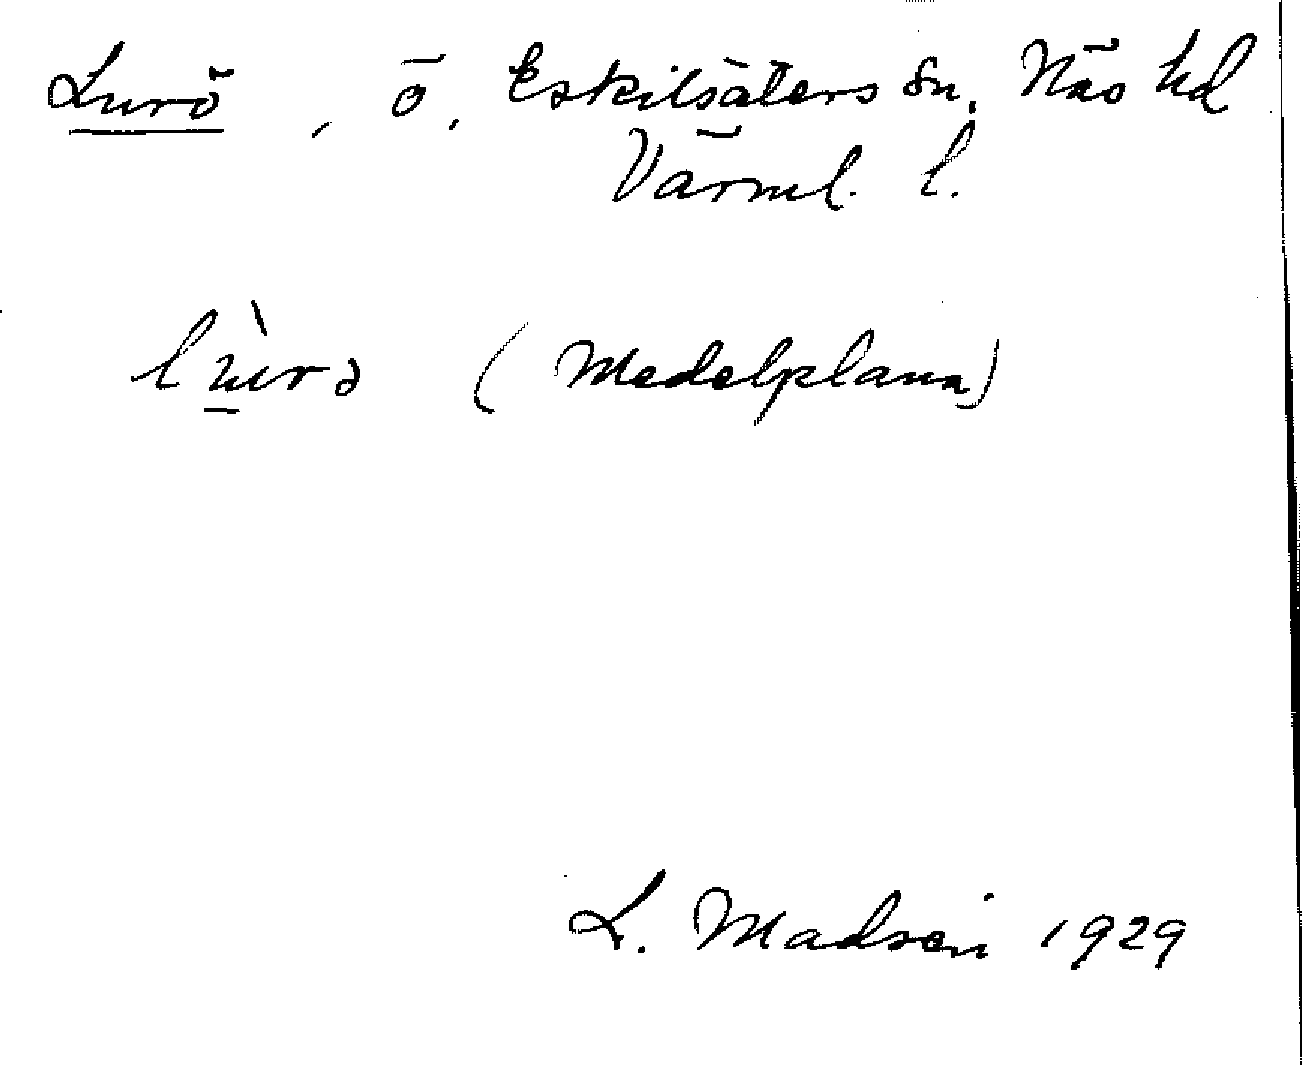 Lurö, ö, Eskilsäters sn, Näs hd
Värml. l.
lù̱rə (Medelplana)
L. Madsén 1929